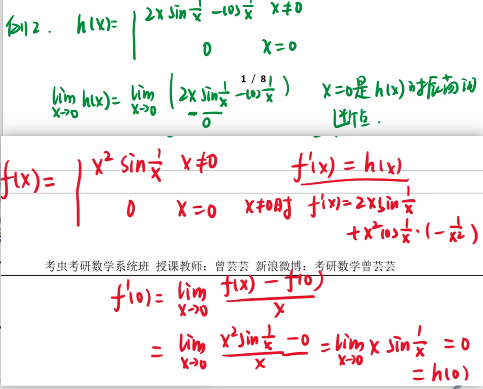 例2. h(x)= { 2x sin 1/x - cos 1/x x≠0
0 x=0
1 / 8
lim x→0 h(x) = lim x→0 (2x sin 1/x - cos 1/x) x=0是h(x)的振荡间
0 断点.
f(x)= { x² sin 1/x x≠0 f'(x) = h(x)
0 x=0 x≠0时 f'(x)=2x sin 1/x
+ x² cos 1/x · (- 1/x²)
考虫考研数学系统班 授课教师：曾芸芸 新浪微博：考研数学曾芸芸
f'(0) = lim x→0 (f(x) - f(0))/x
= lim x→0 (x² sin 1/x - 0)/x = lim x→0 x sin 1/x = 0
= h(0)